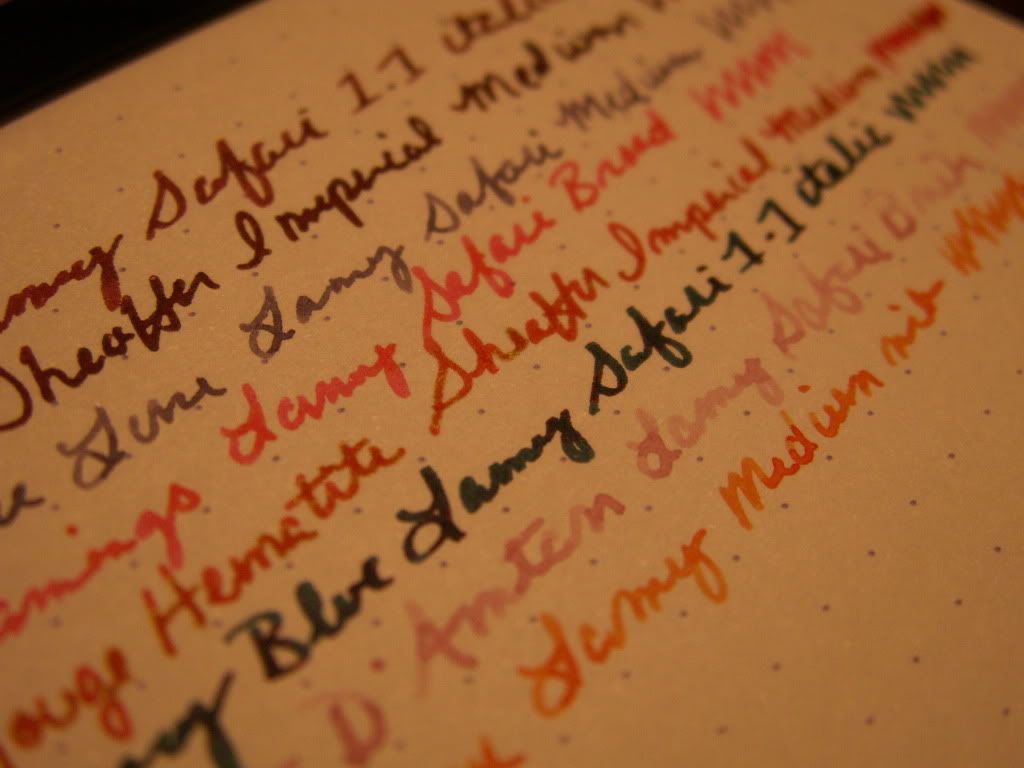 Lamy Safari 1.1 italic
Sheaffer Imperial Medium
Lune Lamy Safari Medium
Lamy Safari Broad
Rouge Hematite Sheaffer Imperial Medium
Blue Lamy Safari 1.1 italic
D. Lamy Safari
Lamy Medium nib